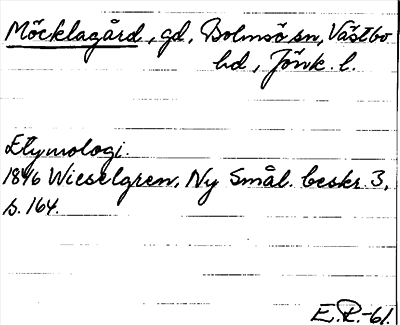 Möcklagård, gd, Bolmsö sn, Västbo
hd, Jönk. l.
Etymologi.
1846 Wieselgren, Ny Smål. beskr. 3,
s. 164.
E.R.-61.